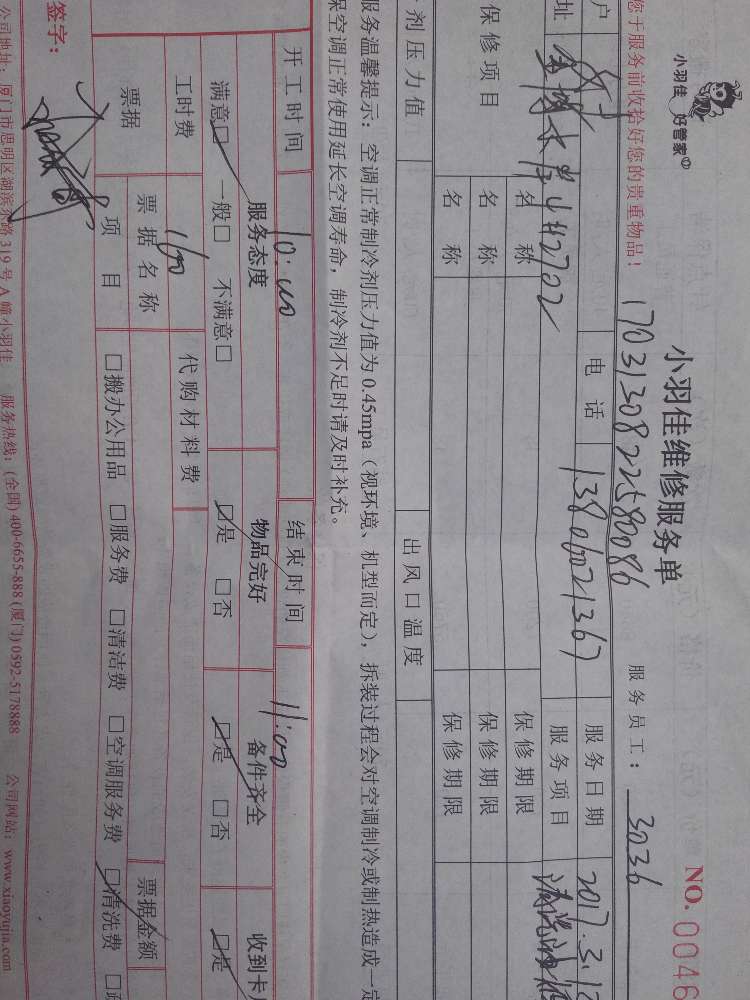 小羽佳 好管家
小羽佳维修服务单
NO. 0046
您于服务前收拾好您的贵重物品!
1703130822580086
服务员工: 3036
户
电话 13806021367
服务日期 2017.3.1
址
442702
服务项目
保修项目
名称 保修期限
名称 保修期限
名称 保修期限
剂压力值 出风口温度
服务温馨提示: 空调正常制冷剂压力值为0.45mpa(视环境、机型而定), 拆装过程会对空调制冷或制热造成一定
保空调正常使用延长空调寿命, 制冷剂不足时请及时补充。
开工时间 10:00 结束时间 11:00
服务态度 物品完好 备件齐全 收到卡
满意□ 一般□ 不满意□ □是 □否 □是 □否 □是
工时费 160 代购材料费
票据 票据名称 票据金额
项目 □搬办公用品 □服务费 □清洁费 □空调服务费 □清洗费
签字:
公司地址: 厦门市思明区湖滨东路319号A幢小羽佳 服务热线: (全国) 400-6655-888 (厦门) 0592-5178888 公司网站: www.xiaoyujia.com